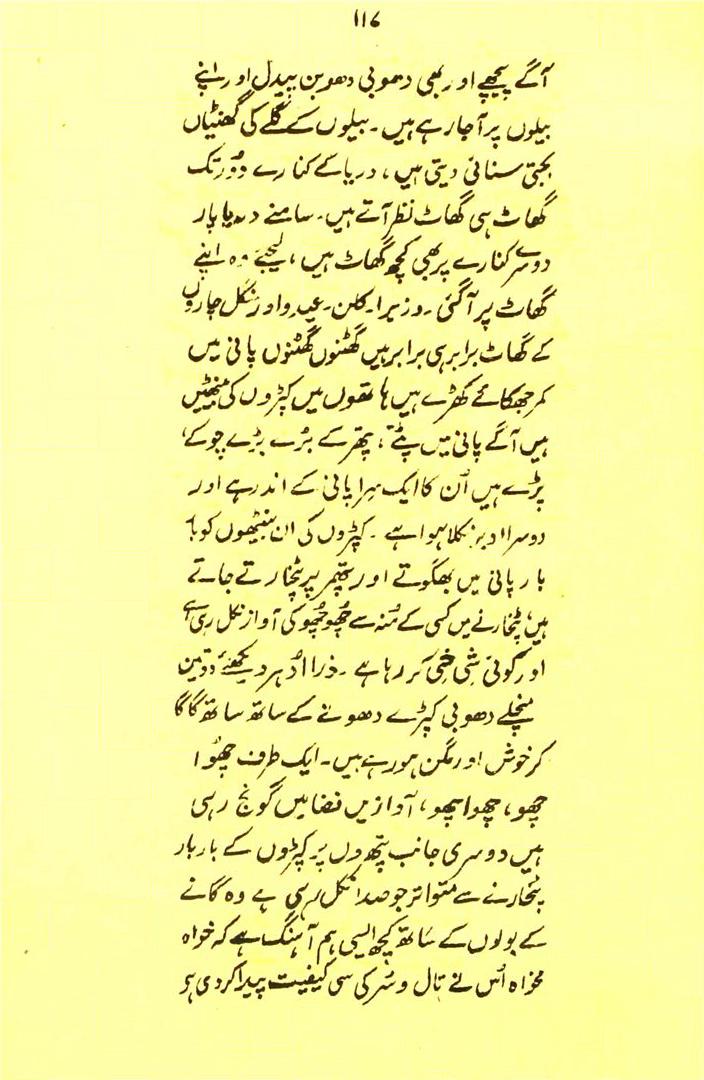 ۱۱۷
آگے پیچھے اور بھی دھوبی دھوبن پیدل اور اپنے
بیلوں پر آجا رہے ہیں۔ بیلوں کے گلے کی گھنٹیاں
بجتی سنائی دیتی ہیں، دریا کے کنارے دُور تک
گھاٹ ہی گھاٹ نظر آتے ہیں۔ سامنے دریا پار
دوسرے کنارے پر بھی کچھ گھاٹ ہیں، لیجئے وہ اپنے
گھاٹ پر آگئی۔ وزیرا۔ کلن۔ عیدو اور منگل چاروں
کے گھاٹ برابر ہی برابر ہیں گھٹنوں گھٹنوں پانی میں
کمر جھکائے کھڑے ہیں ہاتھوں میں کپڑوں کی
ہیں آگے پانی میں پٹے، پتھر کے بڑے بڑے چوکے،
پڑے ہیں اُن کا ایک سِرا پانی کے اندر ہے اور
دوسرا اوپر نکلا ہوا ہے۔ کپڑوں کی ان کو با
بار پانی میں بھگوتے اور پتھر پر پٹخارتے جاتے
ہیں، پٹخارنے میں کسی کے مُنہ سے چُھو چُھو کی آواز نکل رہی ہے
اور کوئی شِی خِی کر رہا ہے۔ ذرا اُدہر دیکھئے دو تین
منچلے دھوبی کپڑے دھونے کے ساتھ ساتھ گا گا
کر خوش اور مگن ہو رہے ہیں۔ ایک طرف چھُوا
چھو، چھوا چھو، آوازیں فضا میں گونج رہی
ہیں دوسری جانب پتھروں پر کپڑوں کے بار بار
پٹخارنے سے متواتر جو صدا نکل رہی ہے وہ گانے
کے بولوں کے ساتھ کچھ ایسی ہم آہنگ ہے کہ خواہ
مخواہ اُس نے تال و سُر کی سی کیفیت پیدا کر دی ہو